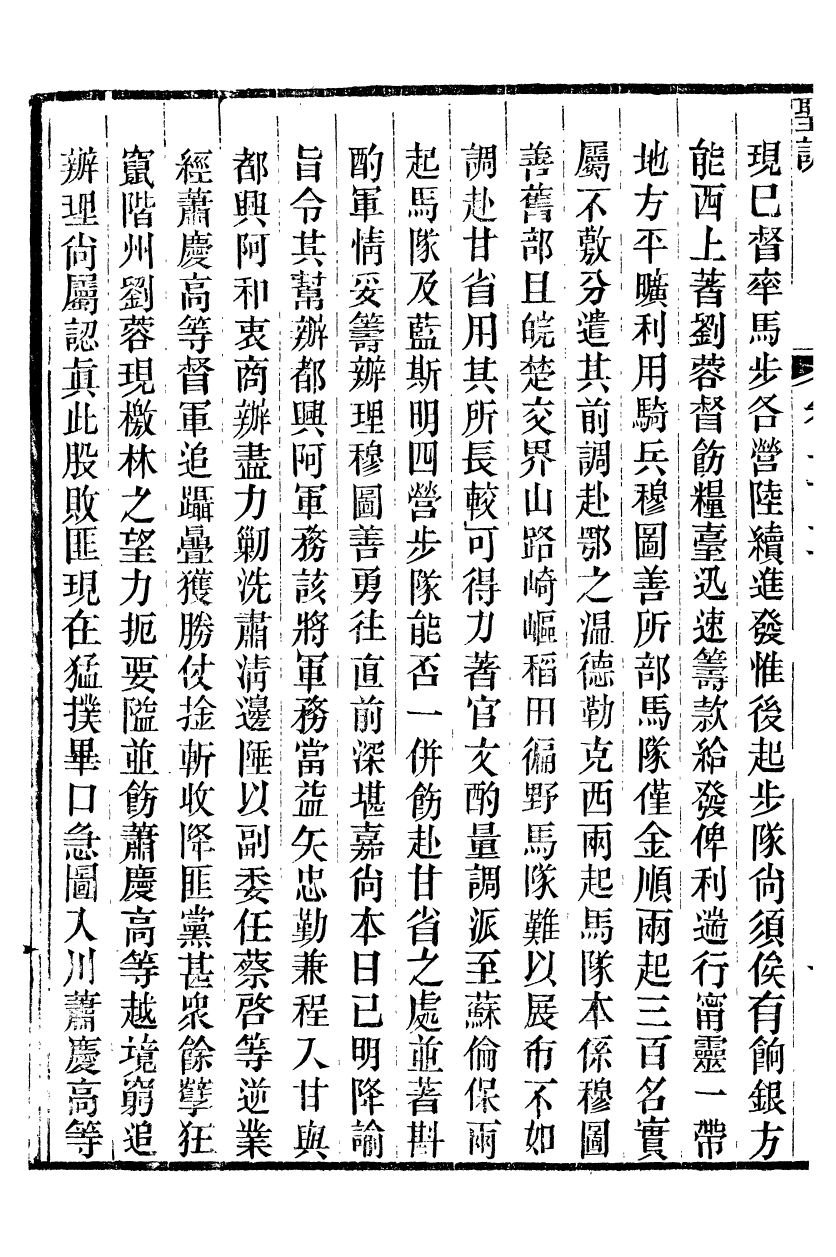 現已督率馬步各營陸續進發惟後起步隊尚須俟有餉銀方
能西上著劉蓉督飭糧臺迅速籌款給發俾利遄行甯靈一帶
地方平曠利用騎兵穆圖善所部馬隊僅金順兩起三百名實
屬不敷分遣其前調赴鄂之温德勒克西兩起馬隊本係穆圖
善舊部且皖楚交界山路崎嶇稻田徧野馬隊難以展布不如
調赴甘省用其所長較可得力著官文酌量調派至蘇倫保兩
起馬隊及藍斯明四營步隊能否一併飭赴甘省之處並著斟
酌軍情妥籌辦理穆圖善勇往直前深堪嘉尚本日已明降諭
旨令其幫辦都興阿軍務該將軍務當益矢忠勤兼程入甘與
都興阿和衷商辦盡力勦洗肅清邊陲以副委任蔡啓等逆業
經蕭慶高等督軍追躡疊獲勝仗掄斬收降匪黨甚衆餘孽狂
竄階州劉蓉現檄林之望力扼要隘並飭蕭慶高等越境窮追
辦理尚屬認眞此股敗匪現在猛撲畢口急圖入川蕭慶高等